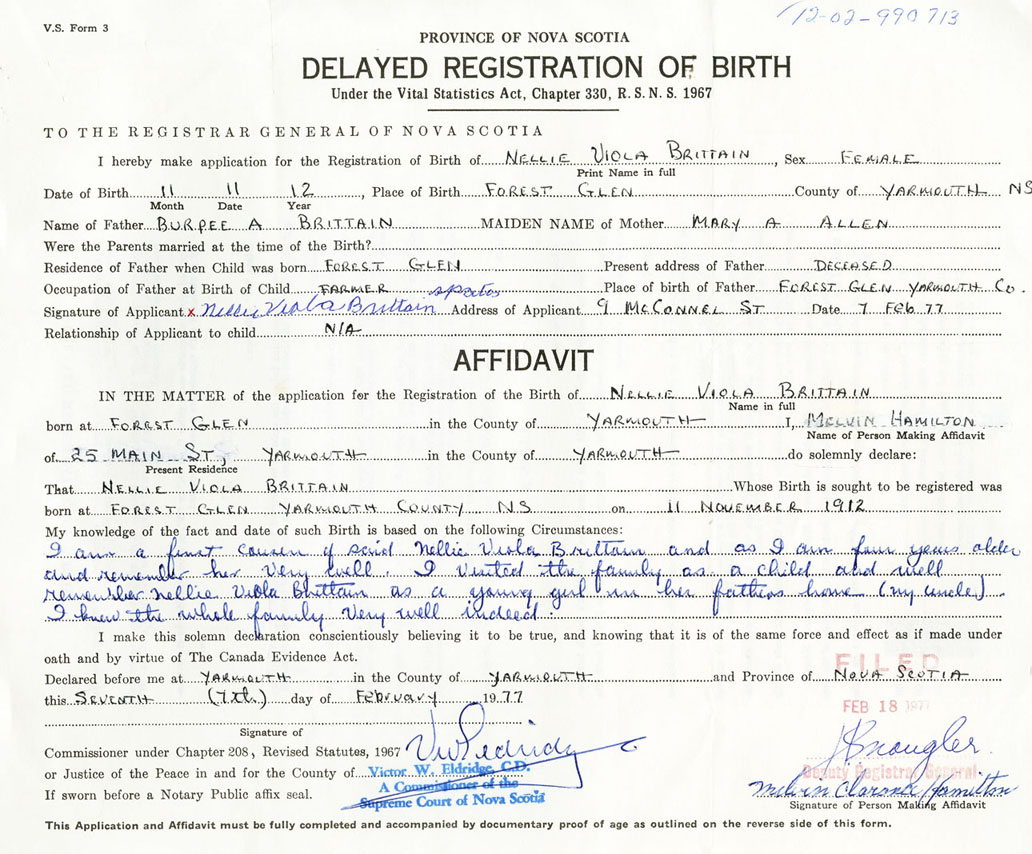 V.S. Form 3
12-02-990713
PROVINCE OF NOVA SCOTIA
DELAYED REGISTRATION OF BIRTH
Under the Vital Statistics Act, Chapter 330, R. S. N. S. 1967
TO THE REGISTRAR GENERAL OF NOVA SCOTIA
I hereby make application for the Registration of Birth of NELLIE VIOLA BRITTAIN, Sex FEMALE
Print Name in full
Date of Birth 11 11 12, Place of Birth FOREST GLEN County of YARMOUTH NS
Month Date Year
Name of Father BURPEE A BRITTAIN MAIDEN NAME of Mother MARY A ALLEN
Were the Parents married at the time of the Birth?
Residence of Father when Child was born FOREST GLEN Present address of Father DECEASED
Occupation of Father at Birth of Child FARMER Place of birth of Father FOREST GLEN YARMOUTH CO.
Signature of Applicant x Nellie Viola Brittain Address of Applicant 9 MCCONNEL ST Date 7 FEB 77
Relationship of Applicant to child N/A
AFFIDAVIT
IN THE MATTER of the application for the Registration of the Birth of NELLIE VIOLA BRITTAIN
Name in full
born at FOREST GLEN in the County of YARMOUTH I, MELVIN HAMILTON
Name of Person Making Affidavit
of 25 MAIN ST, YARMOUTH in the County of YARMOUTH do solemnly declare:
Present Residence
That NELLIE VIOLA BRITTAIN Whose Birth is sought to be registered was
born at FOREST GLEN YARMOUTH COUNTY NS on 11 NOVEMBER 1912
My knowledge of the fact and date of such Birth is based on the following Circumstances:
I am a first cousin of said Nellie Viola Brittain and as I am four years older
and remember her very well. I visited the family as a child and well
remember Nellie Viola Brittain as a young girl in her fathers home (my uncle)
I knew the whole family very well indeed.
I make this solemn declaration conscientiously believing it to be true, and knowing that it is of the same force and effect as if made under
oath and by virtue of The Canada Evidence Act.
FILED
Declared before me at YARMOUTH in the County of YARMOUTH and Province of NOVA SCOTIA
this SEVENTH (7th) day of February 1977
FEB 18 1977
Signature of
Commissioner under Chapter 208, Revised Statutes, 1967
or Justice of the Peace in and for the County of Victor W. Eldridge, C.D.
Deputy Registrar General
A Commissioner of the
If sworn before a Notary Public affix seal. Supreme Court of Nova Scotia
Melvin Clarance Hamilton
Signature of Person Making Affidavit
This Application and Affidavit must be fully completed and accompanied by documentary proof of age as outlined on the reverse side of this form.